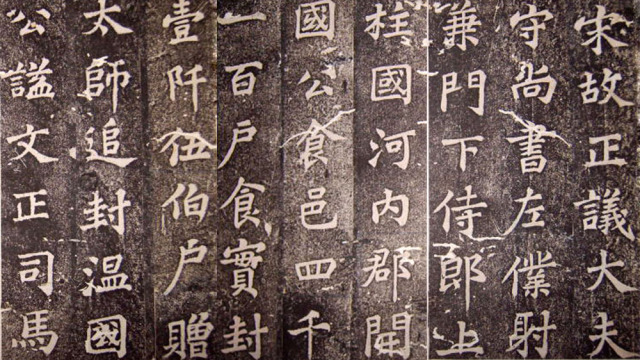 宋故正議大夫
守尚書左僕射
兼門下侍郎上
柱國河内郡開
國公食邑四千
一百戶食實封
壹阡伍伯戶贈
太師追封温國
公謚文正司馬